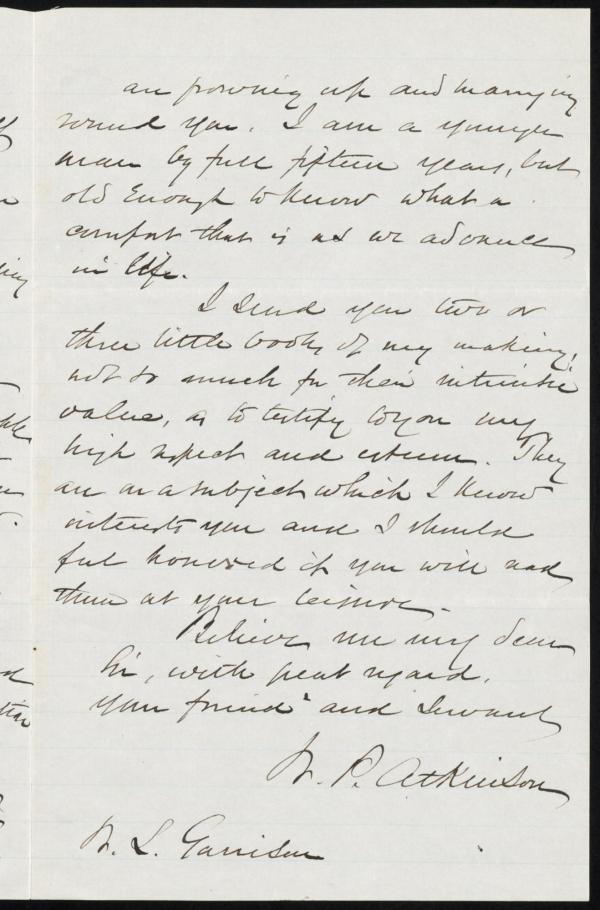 are growing up and marrying
round you. I am a younger
man by full fifteen years, but
old enough to know what a
comfort that is as we advance
in life.
I send you two or
three little books of my making,
not so much for their intrinsic
value, as to testify to you my
high respect and esteem. They
are on a subject which I know
interests you and I should
feel honored if you will read
them at your leisure.
Believe me my dear
Sir, with great regard,
your friend and servant
W. P. Atkinson
W. L. Garrison